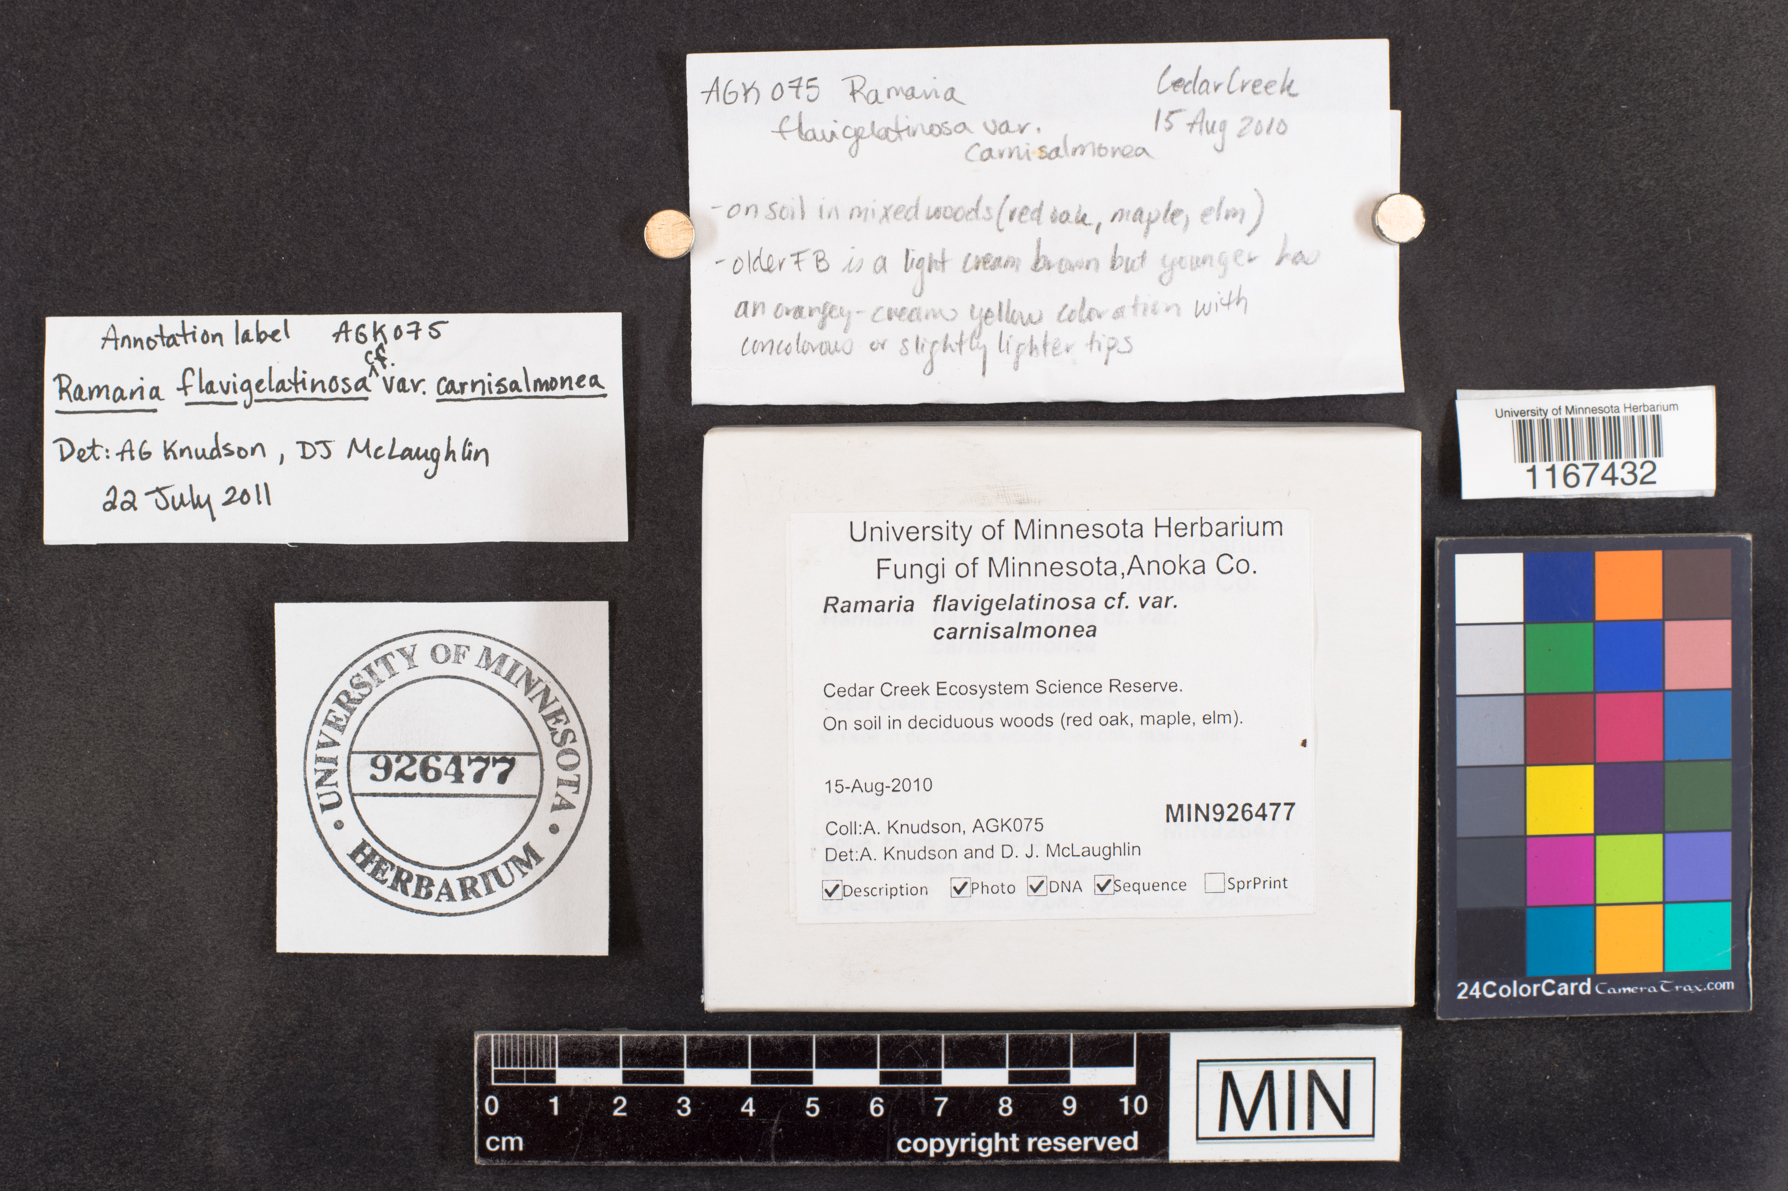 AGK 075 Ramaria
flavigelatinosa var.
carnisalmonea
Cedar Creek
15 Aug 2010
- on soil in mixed woods (red oak, maple, elm)
- older FB is a light cream brown but younger has
an orangey-cream yellow coloration with
concolorous or slightly lighter tips
Annotation label AGK075
cf.
Ramaria flavigelatinosa ^ var. carnisalmonea
Det: AG Knudson, DJ McLaughlin
22 July 2011
University of Minnesota Herbarium
1167432
University of Minnesota Herbarium
Fungi of Minnesota,Anoka Co.
Ramaria flavigelatinosa cf. var.
carnisalmonea
Cedar Creek Ecosystem Science Reserve.
On soil in deciduous woods (red oak, maple, elm).
15-Aug-2010
MIN926477
Coll:A. Knudson, AGK075
Det:A. Knudson and D. J. McLaughlin
Description Photo DNA Sequence SprPrint
UNIVERSITY OF MINNESOTA
926477
HERBARIUM
24ColorCard CameraTrax.com
0 1 2 3 4 5 6 7 8 9 10
cm copyright reserved
MIN